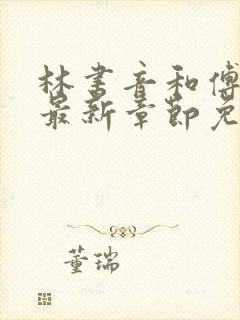 林书音和傅
最新章节免
董瑞